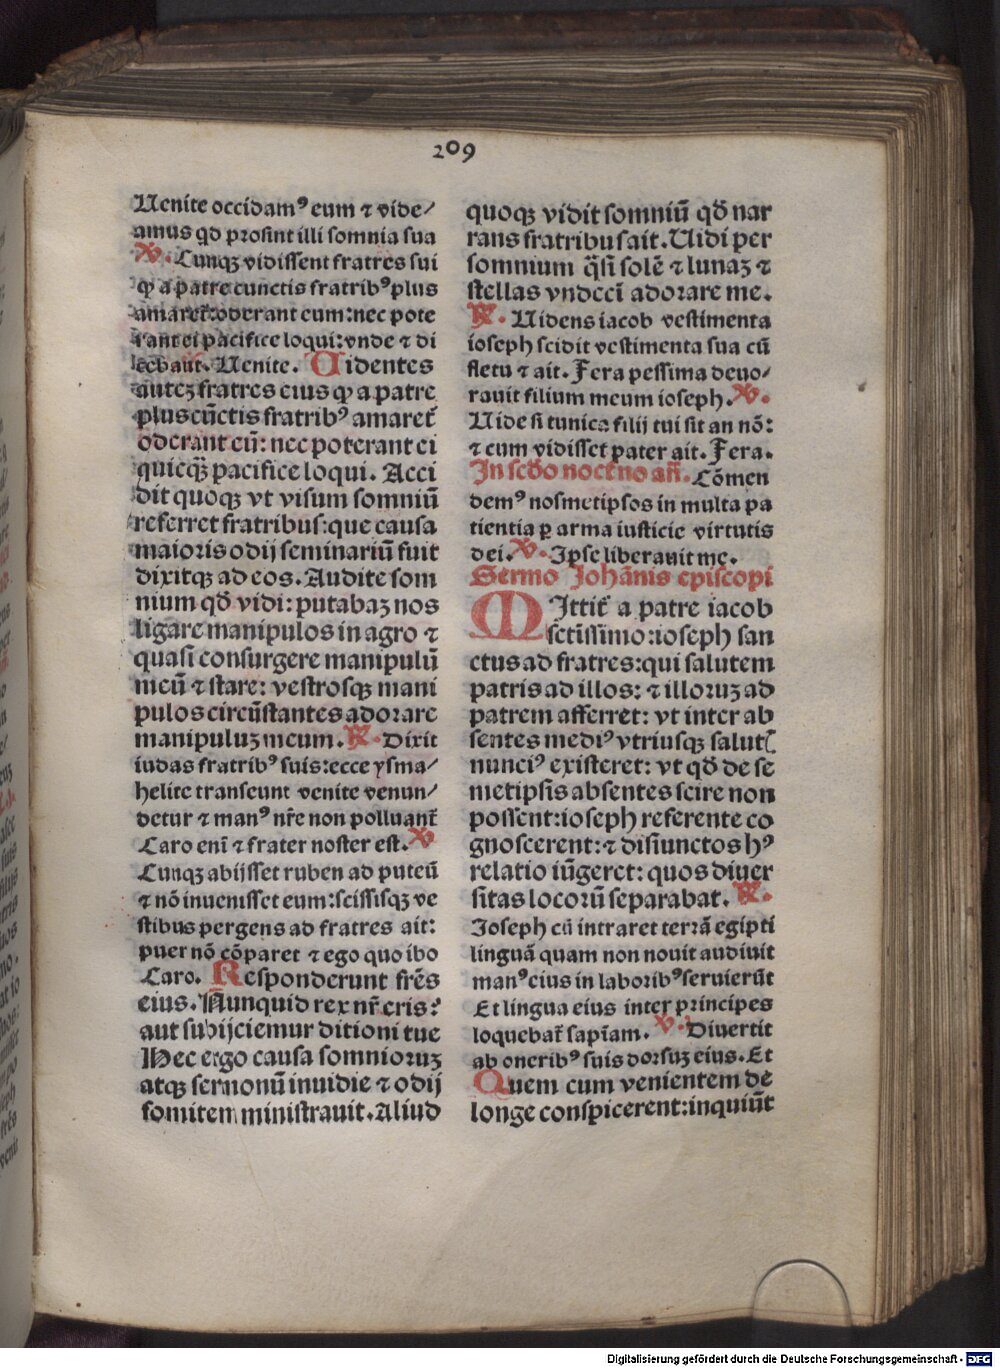 209
Uenite occidamꝰ eum ⁊ vide/
amus qđ prosint illi somnia sua
℣. Cunqꝫ vidissent fratres sui
ꝙ a patre cunctis fratribꝰ plus
amaret̃: oderant eum: nec pote
rant ei pacifice loqui: vnde ⁊ di
cebant. Uenite. Uidentes
autēꝫ fratres eius ꝙ a patre
plus cūctis fratribꝰ amaret̃
oderant eū: nec poterant ei
quicq̃ꝫ pacifice loqui. Acci
dit quoqꝫ vt visum somniū
referret fratribus: que causa
maioris odij seminariū fuit
dixitqꝫ ad eos. Audite som
nium qđ vidi: putabaꝫ nos
ligare manipulos in agro ⁊
quasi consurgere manipulū
meū ⁊ stare: vestrosqꝫ mani
pulos circūstantes adorare
manipuluꝫ meum. ℟. Dixit
iudas fratribꝰ suis: ecce ysma/
helite transeunt venite venun/
detur ⁊ manꝰ nr̄e non polluant̃
Caro eni᷑ ⁊ frater noster est. ℣
Cunqꝫ abijsset ruben ad puteū
⁊ nō inuenisset eum: scissisqꝫ ve
stibus pergens ad fratres ait:
puer nō cōparet ⁊ ego quo ibo
Caro. Responderunt fr̄es
eius. Nunquid rex nr̄ eris?
aut subijciemur ditioni tue
Hec ergo causa somnioruꝫ
atqꝫ sermonū inuidie ⁊ odij
fomitem ministrauit. Aliud
quoqꝫ vidit somniū qđ nar
rans fratribus ait. Uidi per
somnium q̃si solē ⁊ lunaꝫ ⁊
stellas vndecī adorare me.
℟. Uidens iacob vestimenta
ioseph scidit vestimenta sua cū
fletu ⁊ ait. Fera pessima deuo/
rauit filium meum ioseph. ℣.
Uide si tunica filij tui sit an nō:
⁊ cum vidisset pater ait. Fera.
In scđo noct̃no an̄. Cōmen
demꝰ nosmetipsos in multa pa
tientia ꝑ arma iusticie virtutis
dei. ℣. Ipse liberauit me.
Sermo Johānis episcopi
Mittit̃ a patre iacob
sctīssimo: ioseph san
ctus ad fratres: qui salutem
patris ad illos: ⁊ illoruꝫ ad
patrem afferret: vt inter ab
sentes mediꝰ vtriusqꝫ salutꝭ
nunciꝰ existeret: vt qđ de se
metipsis absentes scire non
possent: ioseph referente co
gnoscerent: ⁊ disiunctos hꝰ
relatio iūgeret: quos diuer
sitas locorū separabat. ℟.
Joseph cū intraret terrā egipti
linguā quam non nouit audiuit
manꝰ eius in laboribꝰ seruierūt
Et lingua eius inter principes
loquebat̃ sapīam. ℣. Diuertit
ab oneribꝰ suis dorsuꝫ eius. Et
Quem cum venientem de
longe conspicerent: inquiūt
Digitalisierung gefördert durch die Deutsche Forschungsgemeinschaft - DFG